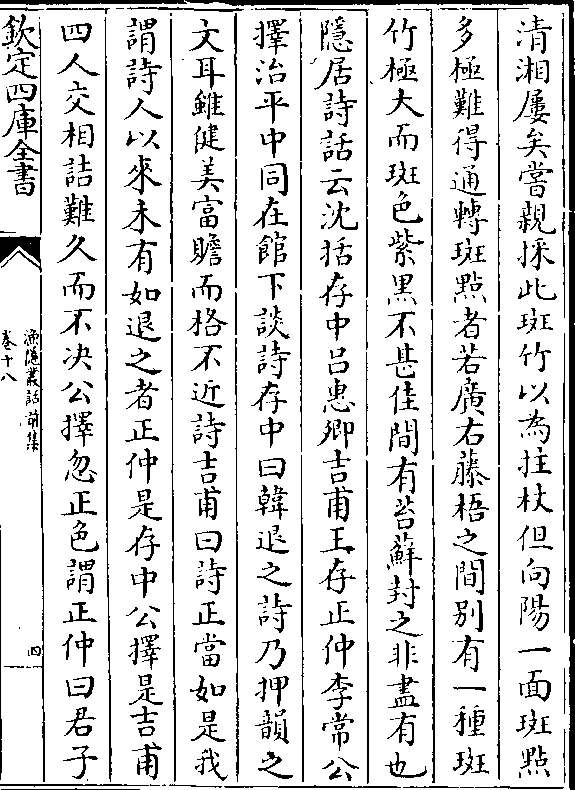 清湘屢矣嘗親採此斑竹以為拄杖但向陽一面斑點
多極難得通轉斑點者若廣右藤梧之間别有一種斑
竹極大而斑色紫黒不甚佳間有苔蘚封之非盡有也
隠居詩話云沈括存中吕惠卿吉甫王存正仲李常公
擇治平中同在館下談詩存中曰韓退之詩乃押韻之
文耳雖健美富贍而格不近詩吉甫曰詩正當如是我
謂詩人以來未有如退之者正仲是存中公擇是吉甫
四人交相詰難久而不决公擇忽正色謂正仲曰君子
欽定四庫全書
漁隠叢話前集
卷十八
四